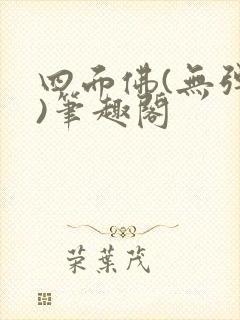 四面佛(無彈
)筆趣閣
荣葉茂